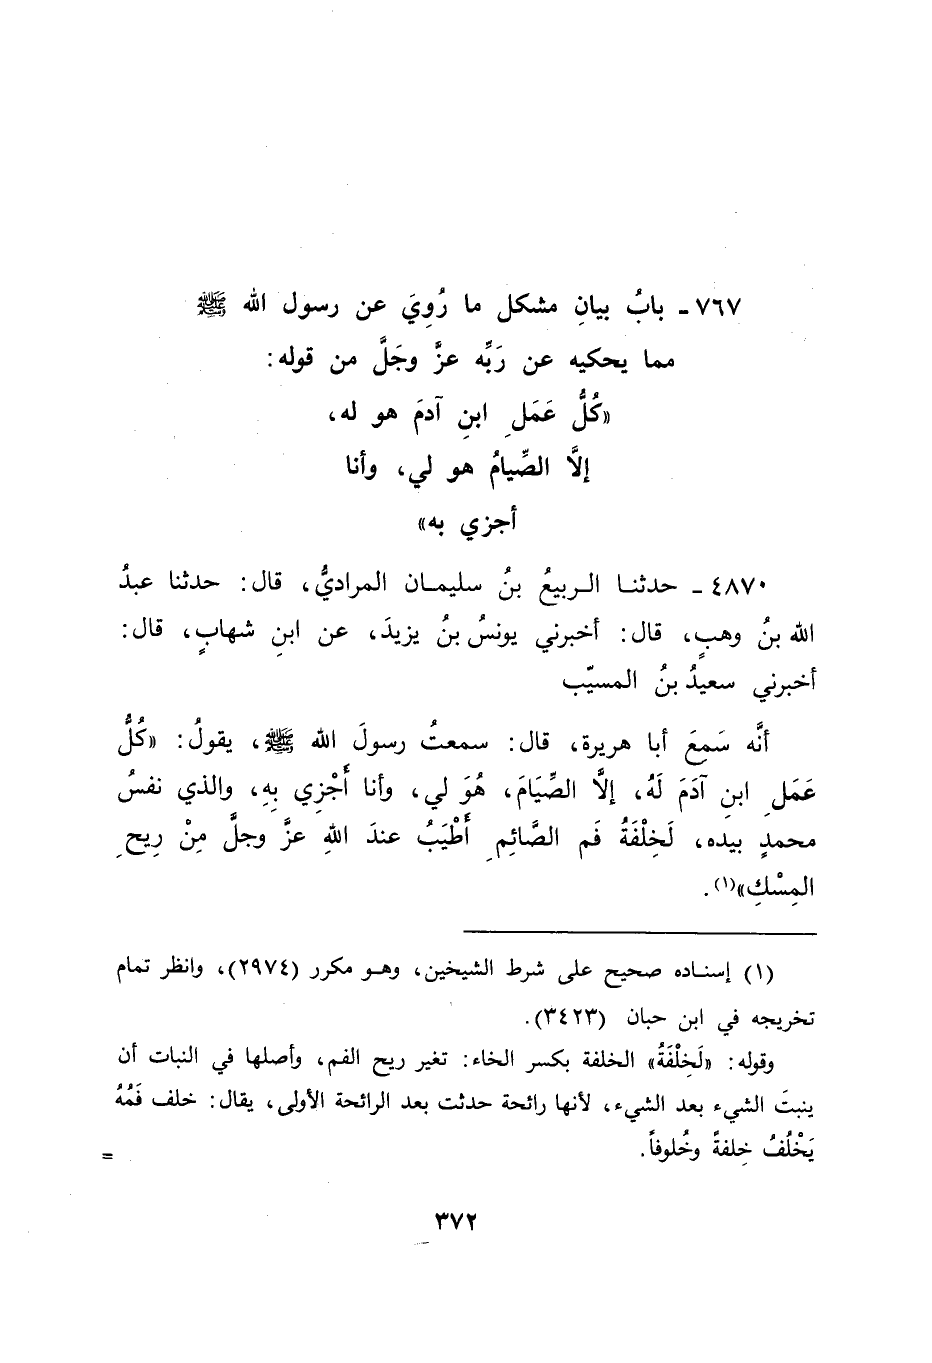 ٧٦٧ ـ بابُ بيانِ مشكل ما رُوِيَ عن رسول الله ﷺ
مما يحكيه عن رَبِّه عزَّ وجَلَّ من قوله:
«كُلُّ عَمَلِ ابنِ آدمَ هو له،
إلاَّ الصِّيامُ هو لي، وأنا
أجزي به»
٤٨٧٠ ـ حدثنـا الـربيعُ بنُ سليمـان المراديُّ، قال: حدثنا عبدُ
الله بنُ وهبٍ، قال: أخبرني يونسُ بنُ يزيدَ، عن ابنِ شهابٍ، قال:
أخبرني سعيدُ بنُ المسيّب
أنَّه سَمِعَ أبا هريرة، قال: سمعتُ رسولَ الله ﷺ، يقولُ: «كُلُّ
عَمَلِ ابنِ آدَمَ لَهُ، إلاَّ الصِّيَامَ، هُوَ لي، وأنا أَجْزِي بِهِ، والذي نفسُ
محمدٍ بيده، لَخِلْفَةُ فَم الصَّائِمِ أَطْيَبُ عندَ اللهِ عزَّ وجلَّ مِنْ رِيحِ
المِسْكِ»(١).
(١) إسنـاده صحيح على شرط الشيخين، وهـو مكرر (٢٩٧٤)، وانظر تمام
تخريجه في ابن حبان (٣٤٢٣).
وقوله: «لَخِلْفَةُ» الخلفة بكسر الخاء: تغير ريح الفم، وأصلها في النبات أن
ينبتَ الشيء بعد الشيء، لأنها رائحة حدثت بعد الرائحة الأولى، يقال: خلف فَمُهُ
يَخْلُفُ خِلفةً وخُلوفاً.
=
٣٧٢